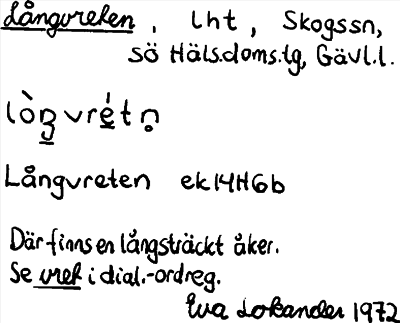 Långvreten, lht, Skogssn,
sö Häls.doms.lg, Gävl.l.
lòŋvrétn̥
Långvreten ek 14H6b
Där finns en långsträckt åker.
Se vret i dial.-ordreg.
Eva Lokander 1972